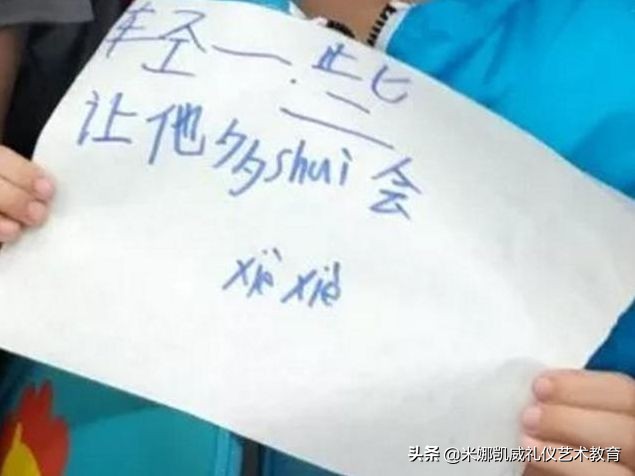 轻一些
让他多shuì会
xiè xiè
头条 @米娜凯威礼仪艺术教育